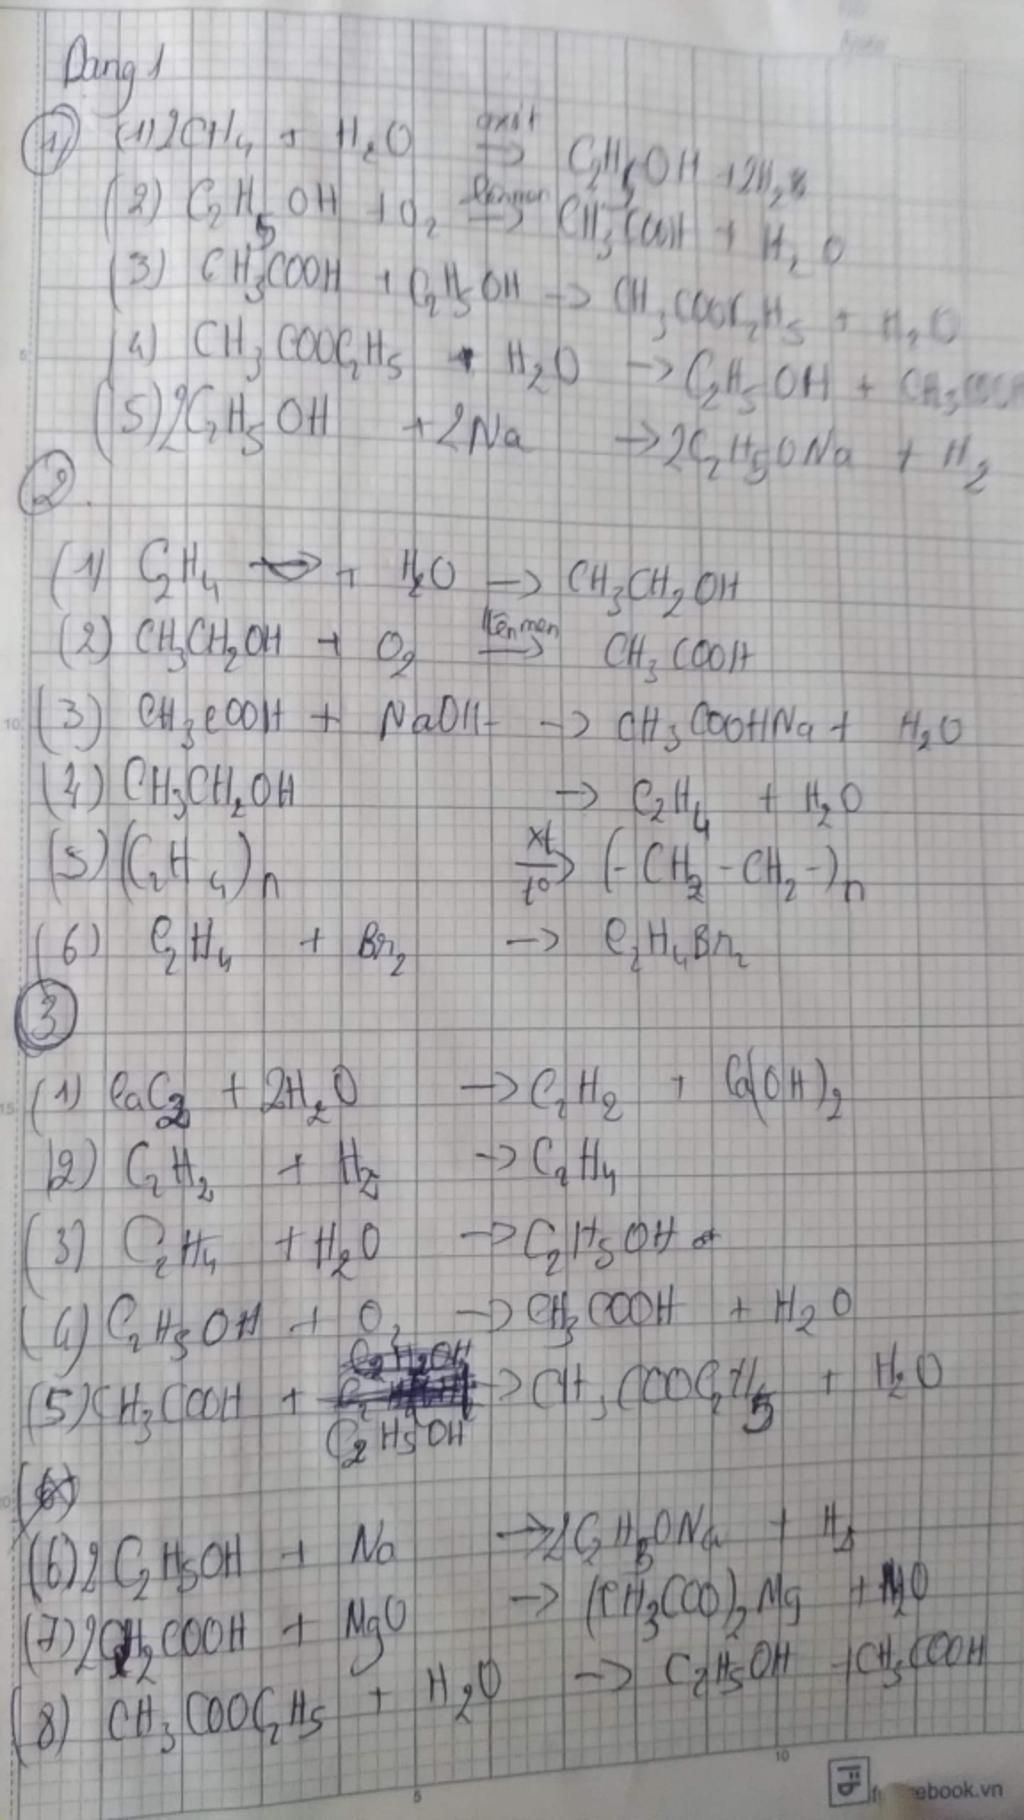 Dạng 1
① (1) 2CH₄ + H₂O axit → C₂H₅OH + 2H₂
(2) C₂H₅OH + O₂ lên men → CH₃COOH + H₂O
(3) CH₃COOH + C₂H₅OH → CH₃COOC₂H₅ + H₂O
(4) CH₃COOC₂H₅ + H₂O → C₂H₅OH + CH₃COOH
(5) 2C₂H₅OH + 2Na → 2C₂H₅ONa + H₂
②.
(1) C₂H₄ + H₂O → CH₃CH₂OH
(2) CH₃CH₂OH + O₂ lên men → CH₃COOH
(3) CH₃COOH + NaOH → CH₃COOHNa + H₂O
(4) CH₃CH₂OH → C₂H₄ + H₂O
(5) (C₂H₄)n xt → t° (-CH₂-CH₂-)n
(6) C₂H₄ + Br₂ → C₂H₄Br₂
③
(1) CaC₂ + 2H₂O → C₂H₂ + Ca(OH)₂
(2) C₂H₂ + H₂ → C₂H₄
(3) C₂H₄ + H₂O → C₂H₅OH
(4) C₂H₅OH + O₂ → CH₃COOH + H₂O
(5) CH₃COOH + C₂H₅OH → CH₃COOC₂H₅ + H₂O
(6) 2C₂H₅OH + Na → 2C₂H₅ONa + H₂
(7) 2CH₂COOH + MgO → (CH₃COO)₂Mg + H₂O
(8) CH₃COOC₂H₅ + H₂O → C₂H₅OH + CH₃COOH
5
10
15
5
10